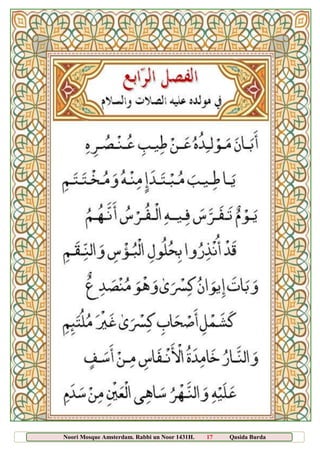 الفصل الرّابع
في مولده عليه الصلات والسلام
أَبَانَ مَوْلِدُهُ عَنْ طِيبِ عُنْصُرِهِ
يَا طِيبَ مُبْتَدَإٍ مِنْهُ وَمُخْتَتَمِ
يَوْمٌ تَفَرَّسَ فِيهِ الْفُرْسُ أَنَّهُمُ
قَدْ أُنْذِرُوا بِحُلُولِ الْبُؤْسِ وَالنِّقَمِ
وَبَاتَ إِيوَانُ كِسْرَىٰ وَهْوَ مُنْصَدِعٌ
كَشَمْلِ أَصْحَابِ كِسْرَىٰ غَيْرَ مُلْتَئِمِ
وَالنَّارُ خَامِدَةُ الْأَنْفَاسِ مِنْ أَسَفٍ
عَلَيْهِ وَالنَّهْرُ سَاهِي الْعَيْنِ مِنْ سَدَمِ
Noori Mosque Amsterdam. Rabbi un Noor 1431H. 17 Qasida Burda